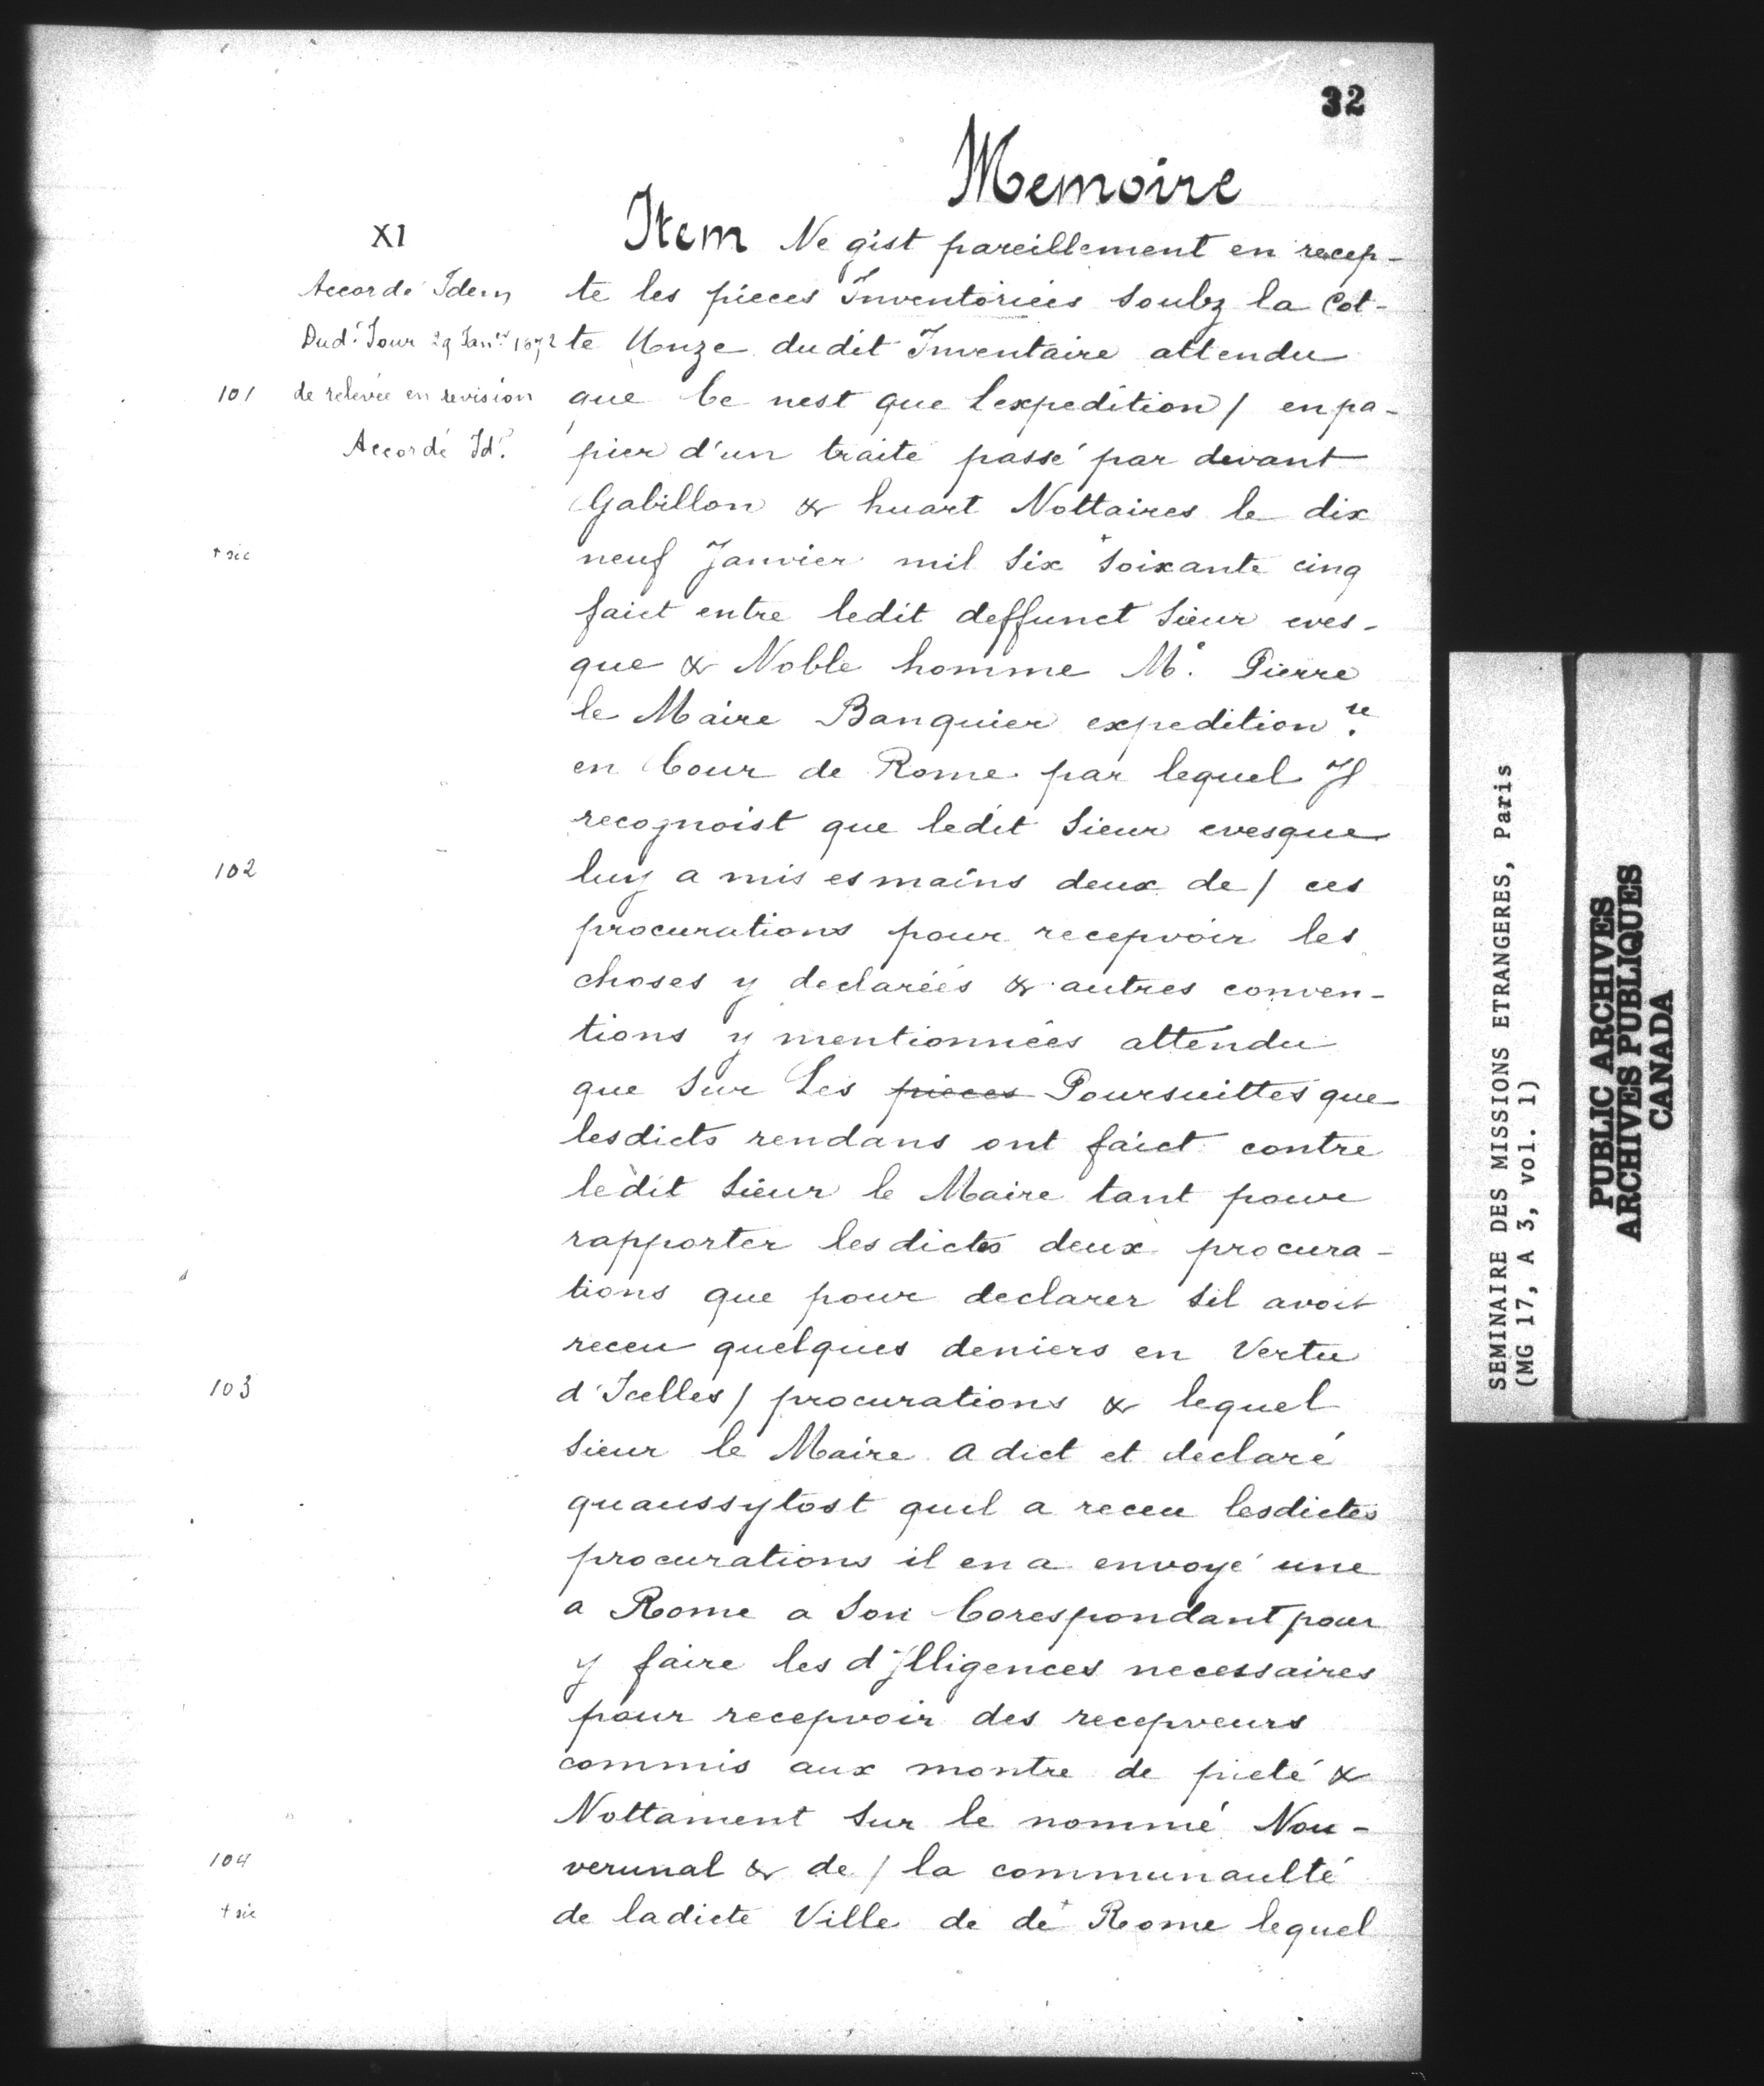 32
Memoire
XI
Item Ne gist pareillement en recep-
Accordé Idem
te les pieces Inventoriées soubz la Cot-
Dud. Jour 29 Janer 1672
te Unze dudit Inventaire attendu
101 de relevée en revision
que Ce nest que lexpedition / en pa-
Accordé Id.
pier d'un traité passé par devant
Gabillon & huart Nottaires le dix
+ sic
neuf Janvier mil six + soixante cinq
faict entre ledit deffunct sieur eves-
que & Noble homme Me. Pierre
le Maire Banquier expeditionre.
en Cour de Rome par lequel Il
recognoist que ledit sieur evesque
102
luy a mis es mains deux de / ces
procurations pour recepvoir les
choses y declareés & autres conven-
tions y mentionneés attendu
que sur Les pieces Poursuittes que
lesdicts rendans ont faict contre
ledit sieur le Maire tant pour
rapporter lesdictes deux procura-
tions que pour declarer sil avoit
receu quelques deniers en Vertu
103
d'Icelles / procurations & lequel
sieur le Maire a dict et declaré
quaussytost quil a receu lesdictes
procurations il en a envoyé une
a Rome a son Corespondant pour
y faire les dIlligences necessaires
pour recepvoir des recepveurs
commis aux montre de pieté &
Nottament sur le nommé Nou-
104
verunal & de / la communaulté
+ sic
de ladicte Ville de de + Rome lequel
SEMINAIRE DES MISSIONS ETRANGERES, Paris
(MG 17, A 3, vol. 1)
PUBLIC ARCHIVES
ARCHIVES PUBLIQUES
CANADA